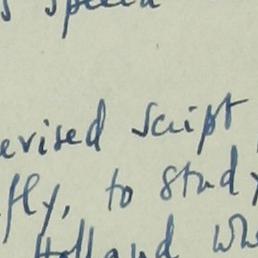 speed
evised script
fly, to study
Holland whe